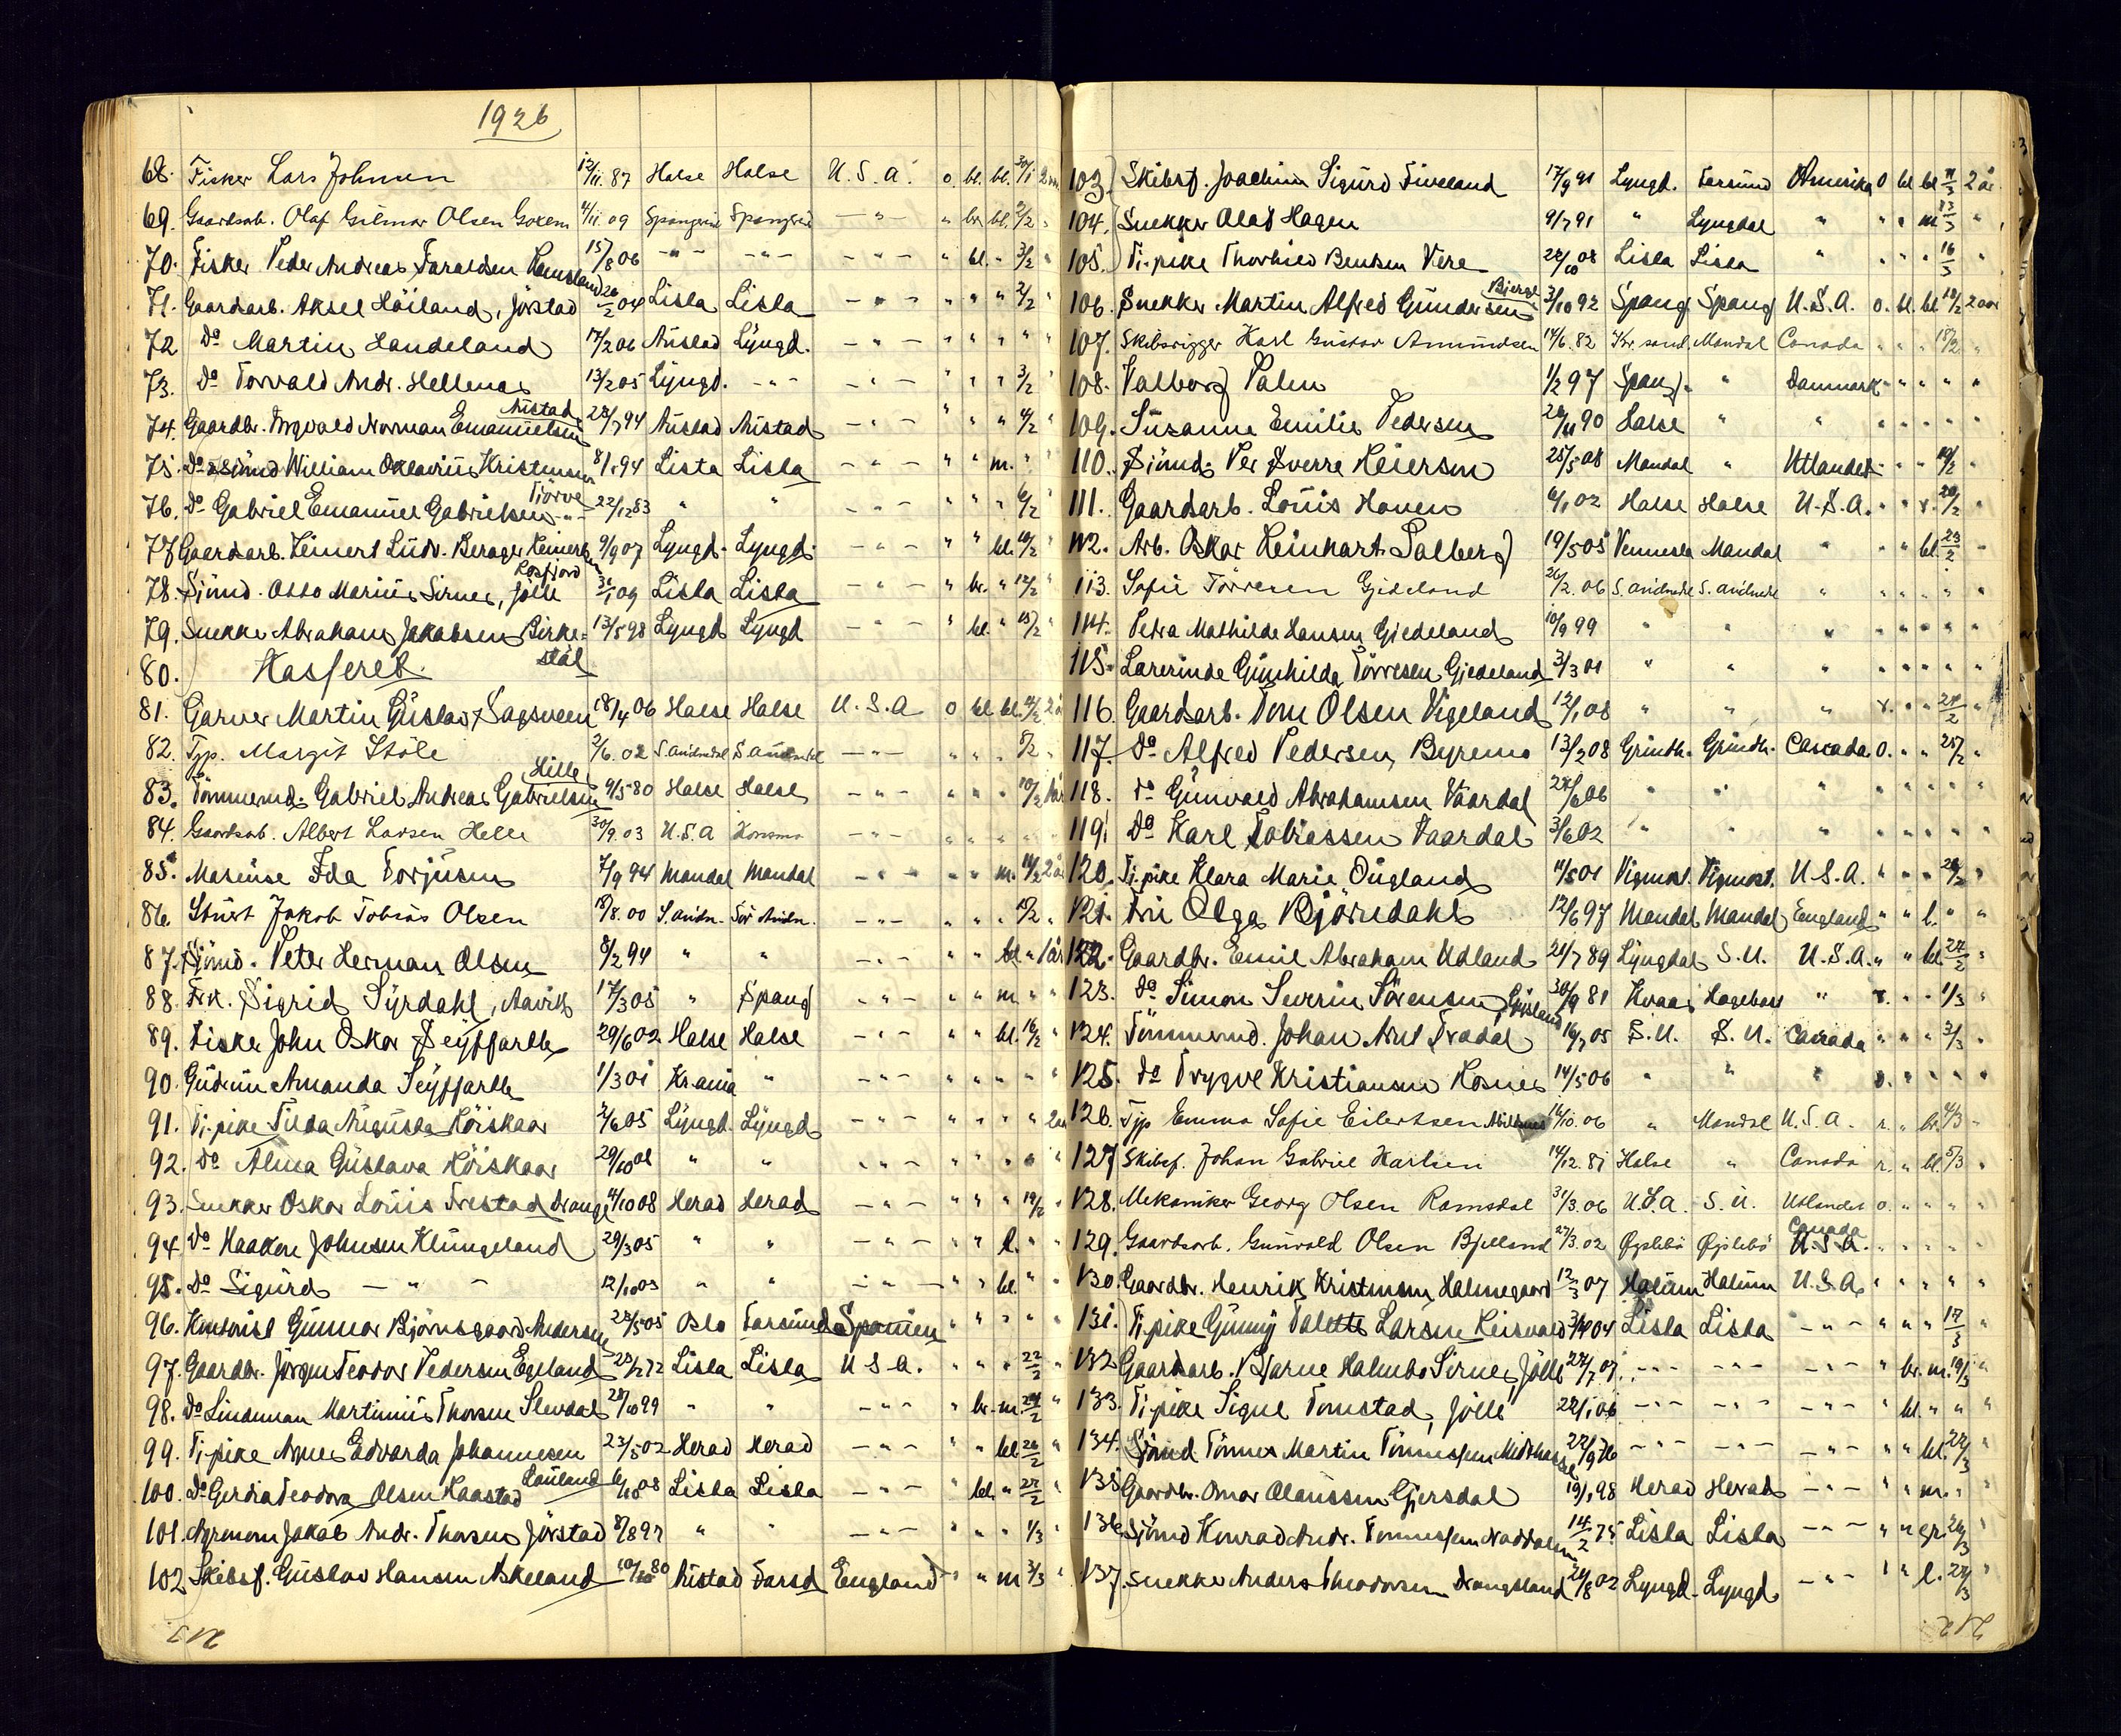 1926
68. Fisker Lars Johnsen 12/11.87 Halse Halse U.S.A. o. bl. bl. 30/1
69. Gaardsarb. Olaf Gilmar Olsen 4/11 09 Spangreid Spangreid — " — " br. bl. 2/2 "
70. Fisker Peder Andreas Faraldsen Ramsland 15/8 06 — " — — " — — " — " bl. " 3/2 "
71. Gaardarb. Aksel Höiland, Jörstad 26/2 04 Lista Lista — " — " " " 2/2 "
72 Do Martin Handeland 17/2 06 Austad Lyngd. — " — " " " " "
73. Do Torvald Andr. Hellenes 13/2 05 Lyngd. — " — — " — " " " 3/2 "
74. Gaardbr. Ingvald Norman Emanuelsen Austad 28/7 94 Austad Austad — " — " " " 4/2 "
75. Do William Oktavius Kristensen 8/1 94 Lista Lista — " — " " m. " "
76. Do Gabriel Emanuel Gabrielsen Tjörve 22/12 83 " " — " — " " " 6/2 "
77 Gaardarb. Reinert Ludv. Berager Reinertsen Rosfjord 9/9 07 Lyngd. Lyngd. — " — " " bl. 10/2 "
78. Sjömd. Otto Marius Sirnes, Jölle 30/1 09 Lista Lista — " — " br. " 12/2 "
79. Snekker Abraham Jakobsen Birke= stöl 13/5 98 Lyngd Lyngd — " — " bl. " 15/2 "
80. Kasseret.
81. Garver Martin Gustav Sagsveen 18/4 06 Halse Halse U.S.A o bl bl. 4/2 2 år
82. Tjp. Margit Stöle 2/6. 02 S. Audnedal S Audnedal — " — " " " 8/2 "
83. Tömmermd. Gabriel Andreas Gabrielsen Hille 9/5 80 Halse Halse — " — " " " 10/2 1 år
84. Gaardsarb. Albert Larsen Helle 30/9. 03 U.S.A Konsmo — " — " " " " "
85. Maseuse Ida Torjusen 7/9 94 Mandal Mandal — " — " " m. 14/2 2 år
86. Stuert Jakob Tobias Olsen 18/8. 00 S. Audn. Sör Audn. — " — " " " 15/2 "
87. Sjömd. Peter Herman Olsen 8/2 94 " " — " — " " bl. " 1 år
88. Frk. Sigrid Syrdahl, Aavik 17/3 05 " Spang — " — " " m. " "
89. Fisker John Oskar Seyffarth 29/6 02 Halse Halse — " — " " bl. 16/2 "
90. Gudrun Amanda Seyffarth 1/3 01 Kr.ania " — " — " " " " "
91. Tj.pike Tilda Augusta Röiskaar 2/6 05 Lyngd. Lyngd — " — " " " "
92. Do Alma Gustava Röiskaar 29/10 08 " " — " — " " " " "
93. Snekker Oskar Louis Frestad Drange 4/10 08 Herad Herad — " — " " " 19/2 "
94. Do Haakon Johnsen Klungeland 29/3 05 " " — " — " " l. " "
95. Do Sigurd — " — 12/10 03 " " — " — " " bl. " "
96. Kontorist Gunnar Björnsgaard Andersen 28/5 05 Oslo Farsund Spanien " " " " "
97. Gaardbr. Jörgen Teodor Pedersen Egeland 28/2 72 Lista Lista U S A. " " " 22/2 "
98. Do Lindeman Martinius Thorsen Slevdal 28/10 99 " " — " — " br. m. 24/2 "
99. Tj.pike Agnes Edvarda Johannesen 23/5 02 Herad Herad — " — " " bl 26/2 "
100. Do Gerdia Teodora Olsen Haastad Lauland 08 Lista Lista — " — " bl. " 27/2 "
101. Agronom Jakob Andr. Thorsen Jörstad 8/8 97 " " — " — " " " 1/3 "
102 Skibsf. Gustav Hansen Askeland 10/10 80 Austad Farsd England " " m 3/3 "
103. Skibsf. Joachim Sigurd Fiveland 17/9 91 Lyngd. Farsund Amerika O bl bl 11/3 2 år
104. Snekker Olaf Hagen 9/7 91 " Lyngdal " " " m 13/3 "
105. Tj.pike Thorbied Bentsen Vere 28/10 08 Lista Lista " " " " 16/3 "
106. Snekker Martin Alfred Gundersen Bjerge 3/10 92 Spang Spang U.S.A. o. bl. bl 10/2 2 aar
107. Skibsrigger Karl Gustav Amundsen 14/6. 82 Kr. sand. Mandal Canada " " " 18/2 "
108. Valborg Palm 1/2 97 Spang. " Danmark " " " " "
109. Susanne Emilie Pedersen 28/11 90 Halse " " " " " " "
110. Sjömd. Per Sverre Reiersen 25/5 08 Mandal " Utlandet " " " 19/2 "
111. Gaardsarb. Louis Homen 6/1 02 Halse Halse U.S.A. " " v. 20/2 "
112. Arb. Oskar Reinhart Salberg 19/5 05 Vennesla Mandal " " " bl. 23/2 "
113. Sofie Törresen Gjedeland 26/2. 06 S. Audnedl S. Audnedl " " " " " "
114. Petra Mathilde Hansen Gjedeland 10/9 99 " " " " " " " "
115. Lærerinde Gunhilda Törresen Gjedeland 3/3 01 " " " " " " " "
116. Gaardsarb. Tom Olsen Vigeland 12/1 08 " " " r. " " 24/2 "
117. Do Alfred Pedersen, Byremo 13/2 08 Grindh. Grindh. Canada O. " " 25/2 "
118. Do Gunvald Abrahamsen Vaardal 28/6 06 " " " " " " " "
119. Do Karl Tobiassen Vaardal 3/6 02 " " " " " " " "
120. Tj.pike Klara Marie Ougland 11/5 01 Vigmost. Vigmost. U.S.A. " " " 26/2 "
121. Fru Olga Björndahl 12/6 97 Mandal Mandal England " " l. " "
122. Gaardbr. Emil Abraham Udland 21/7 89 Lyngdal S.U. U.S.A. " " bl. 27/2 "
123. Do Simon Severin Sörensen Gysland 30/9 81 Kvaas Hægebost " r. " " 1/3 "
124. Tömmermd. Johan Arnt Tradal 16/7 05 S.U. S.U. Canada " " " 3/3 "
125. Do Trygve Kristiansen Rosnes 14/5 06 " " " o. " " " "
126. Tjp Emma Sofie Eilertsen 14/10. 06 " Mandal U.S.A. r. " br. 4/3 "
127 Skibsf. Johan Gabriel Karlsen 14/12. 81 Halse " Canada r. " bl. 5/3 "
128. Mekaniker Georg Olsen Ramsdal 31/3. 06 U.S.A. S.U. Utlandet o. " " " "
129. Gaardsarb. Gunvald Olsen Bjelland 27/3. 02 Øyslebö Øyslebö Canada U.S.A. " " " " "
130. Gaardbr. Henrik Kristensen Halmegaard 12/3 07 Halum Halum U.S.A. " " " " "
131. Tj.pike Gunny Valette Larsen Reisvald 04 Lista Lista — " — " " " 17/3 "
132 Gaardarb. Bjarne Halmbo Sirnes, Jölle 27/7 07. — " — — " — — " — " br. m. 19/3 "
133. Tj.pike Signe Tomstad, Jölle 22/1 06 — " — — " — — " — " bl. " " "
134. Sjömd Tönnes Martin Tönnessen Midthassel 22/9 76 — " — — " — — " — " " bl. 22/3 "
135 Gaardbr. Omar Olaussen Gjersdal 19/1 98 Herad Herad — " — " " m. " "
136. Sjömd Konrad Andr. Tönnessen 14/2 75 Lista Lista — " — " " gr. 26/3 "
137. Snekker Anders Theodorsen Drangsland 24/8 02 Lyngd. Lyngd. — " — " " l. 27/3 "